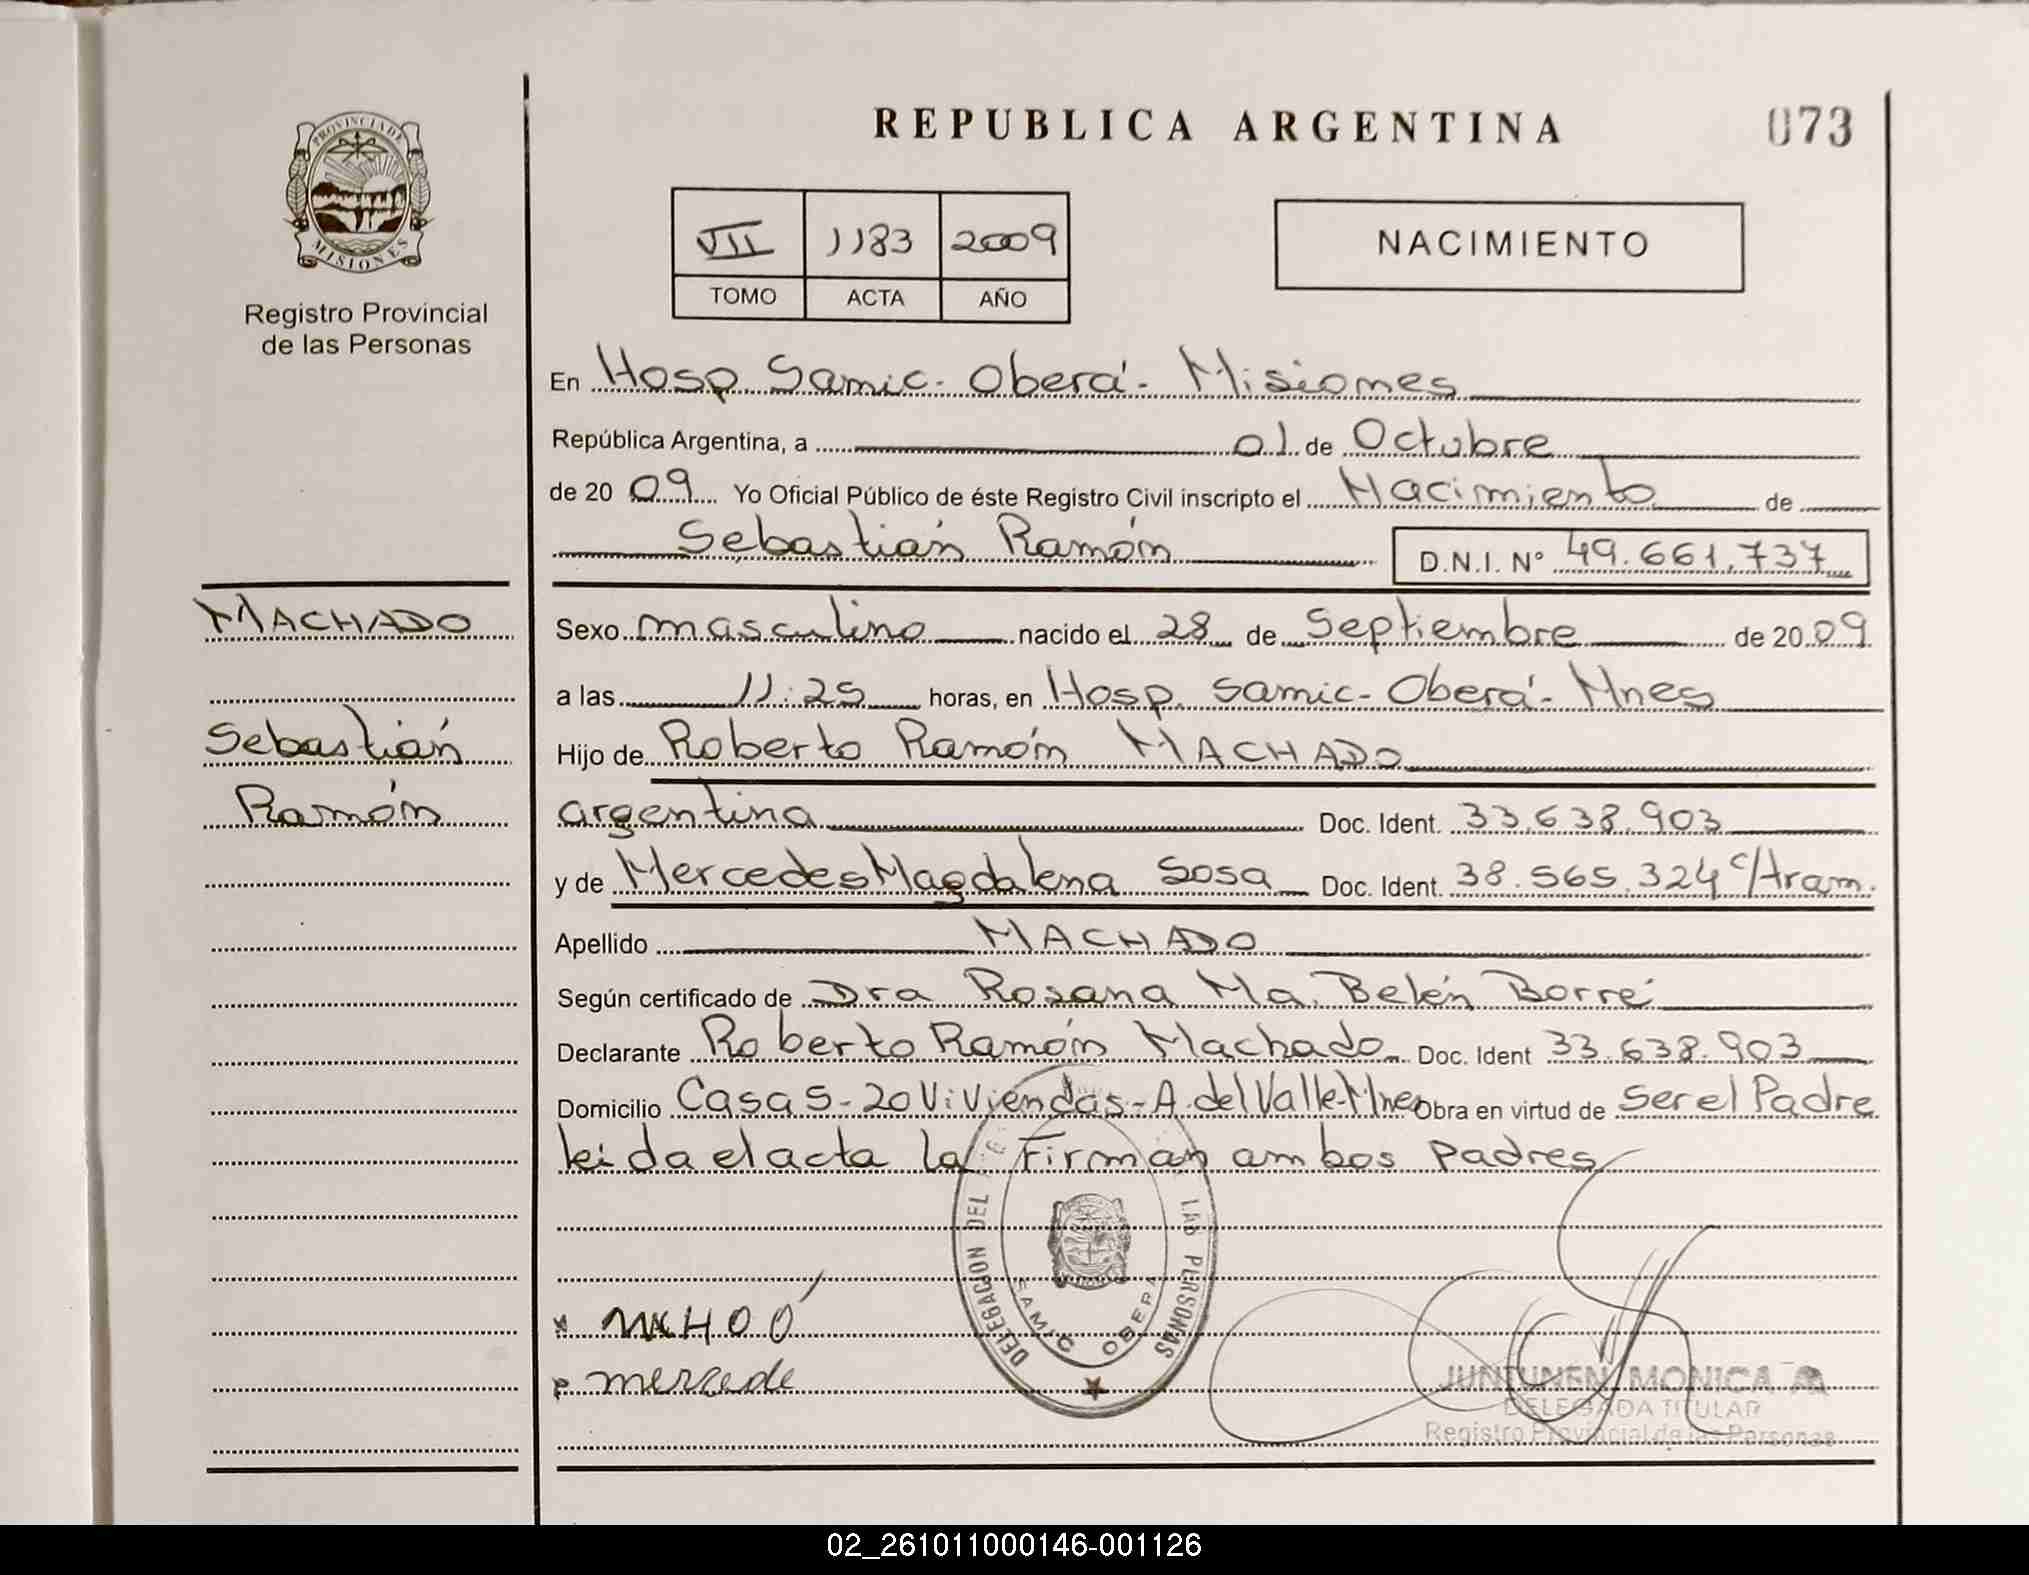 REPUBLICA ARGENTINA
073
PROVINCIA DE
MISIONES
Registro Provincial
de las Personas
VII 1183 2009
TOMO ACTA AÑO
NACIMIENTO
En Hosp Samic - Oberá - Misiones
República Argentina, a 01 de Octubre
de 20 09 Yo Oficial Público de éste Registro Civil inscripto el Nacimiento de
Sebastián Ramón D.N.I. N° 49.661.737
MACHADO
Sebastián
Ramón
Sexo masculino nacido el 28 de Septiembre de 20 09
a las 11:25 horas, en Hosp. Samic - Oberá - Mnes
Hijo de Roberto Ramón MACHADO
argentina Doc. Ident. 33.638.903
y de Mercedes Magdalena Sosa Doc. Ident. 38.565.324 c/tram.
Apellido MACHADO
Según certificado de Dra Rosana Ma. Belén Borré
Declarante Roberto Ramón Machado Doc. Ident 33.638.903
Domicilio Casa 5 - 20 Viviendas - A. del Valle - Mnes Obra en virtud de Ser el Padre
leida el acta la Firman ambos Padres
DELEGACION DEL LAS PERSONAS
SAMIC OBERA
mercede
JUNTUNEN MONICA
DELEGADA TITULAR
Registro Provincial de las Personas
02_261011000146-001126